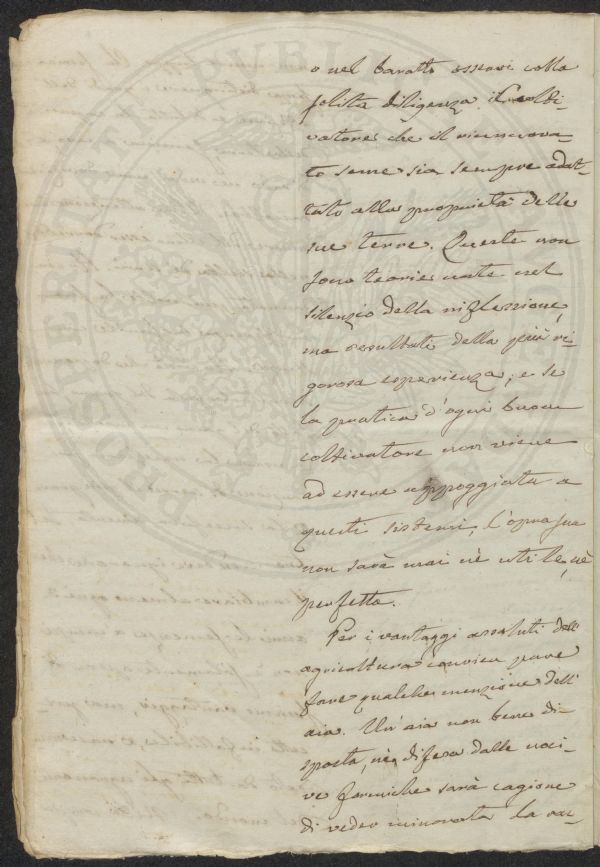 o nel baratto osservi colla
solita diligenza il colti-
vatore che il rinnova-
to seme sia sempre adat-
tato alla proprietà delle
sue terre. Queste non
sono teorie nate nel
silenzio della riflessione,
ma resultati della più ri-
gorosa esperienza, e se
la pratica d'ogni buon
coltivatore non viene
ad essere appoggiata a
questi sistemi, l'opra sua
non sarà mai nè utile, nè
perfetta.
Per i vantaggi assoluti dell'
agricoltura convien pure
fare qualche menzione dell'
aia. Un'aia non bene di-
sposta, nè difesa dalle noci-
ve formiche sarà cagione
di veder minorata la rac-